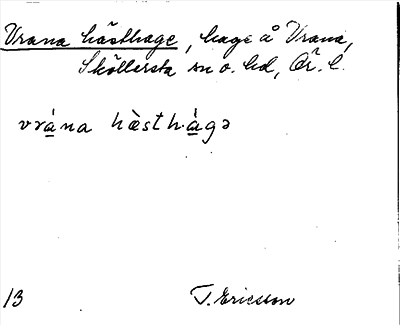 Vrana hästhage, hage å Vrana,
Sköllersta sn o. hd, Ör. l.
vrána hὲsthàgə
13 T. Ericsson